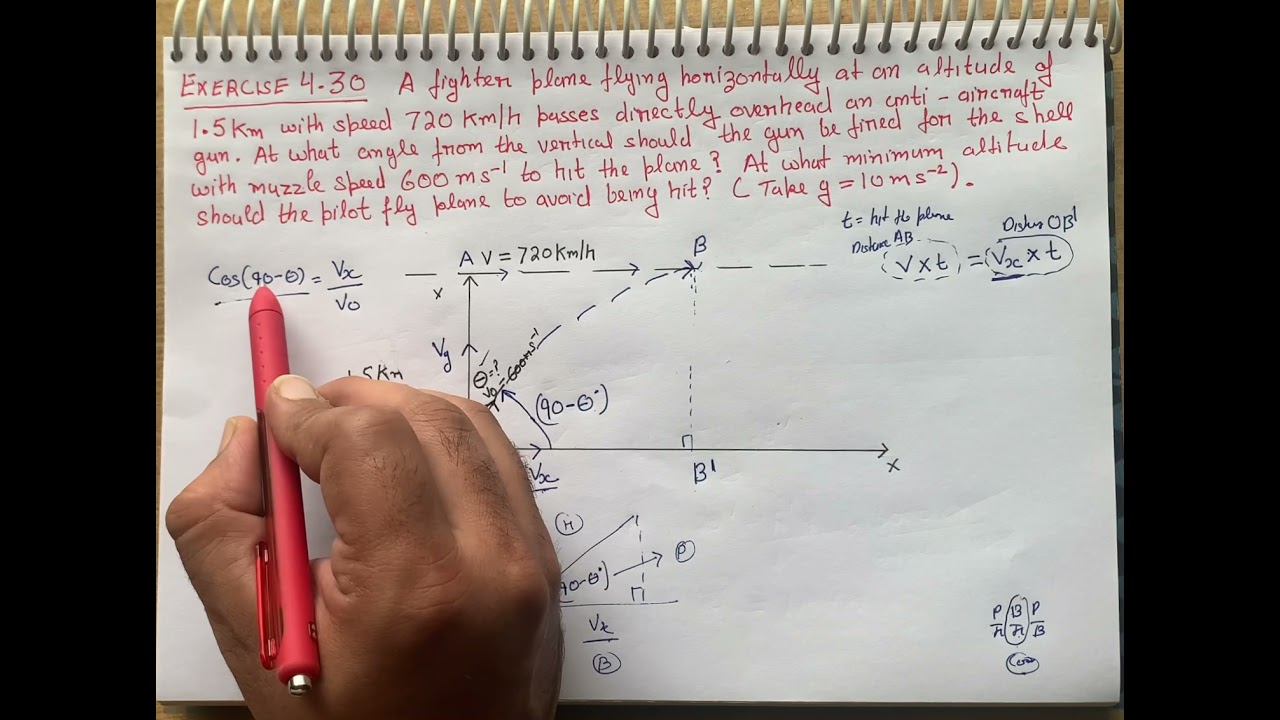 EXERCISE 4.30 A fighter plane flying horizontally at an altitude of
1.5Km with speed 720 Km/h passes directly overhead an anti-aircraft
gun. At what angle from the vertical should the gun be fired for the shell
with muzzle speed 600 ms⁻¹ to hit the plane? At what minimum altitude
should the pilot fly plane to avoid being hit? (Take g = 10 ms⁻²).
t = hit the plane
Distance AB
Distance OB'
V x t = Vx x t
Cos(90-θ) = Vx/V0
A V = 720Km/h
B
x
Vy
θ=?
V0=600ms⁻¹
(90-θ°)
Vx
B'
x
H
(90-θ°)
P
Vx
B
P/H B/H P/B
Cos